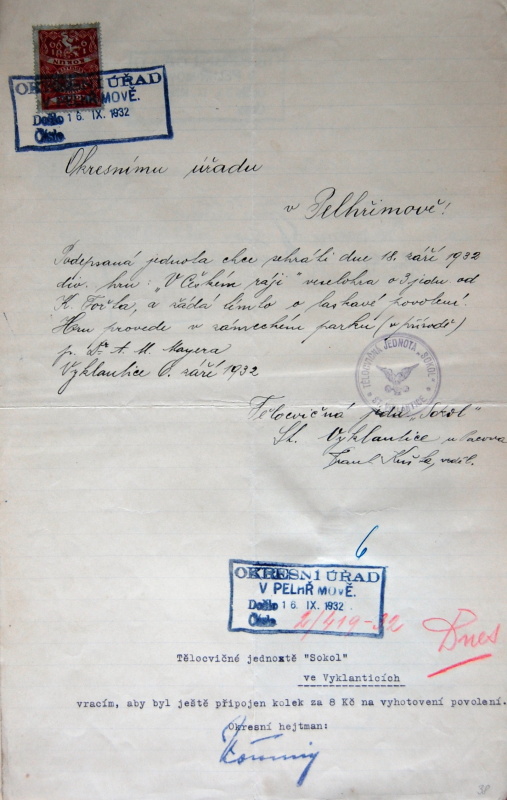 OKRESNÍ ÚŘAD
V PELHŘIMOVĚ.
Došlo 16. IX. 1932
Číslo
Okresnímu úřadu
v Pelhřimově!
Podepsaná jednota chce sehráti dne 18. září 1932
div. hru: „V Českém ráji" veselohra o 3 jedn. od
K. Fořta, a žádá tímto o laskavé povolení.
Hru provede v zámeckém parku (v přírodě)
p. Dr. A. M. Mayera
Vyklantice 6. září 1932
TĚLOCVIČNÁ JEDNOTA „SOKOL"
ST. VYKLANTICE
Tělocvičná jedn. „Sokol"
St. Vyklantice u Pacova
Frant.
6
OKRESNÍ ÚŘAD
V PELHŘIMOVĚ.
Došlo 16. IX. 1932
Číslo 2/419-32
Dnes
Tělocvičné jednotě "Sokol"
ve Vyklanticích
vracím, aby byl ještě připojen kolek za 8 Kč na vyhotovení povolení.
Okresní hejtman:
38